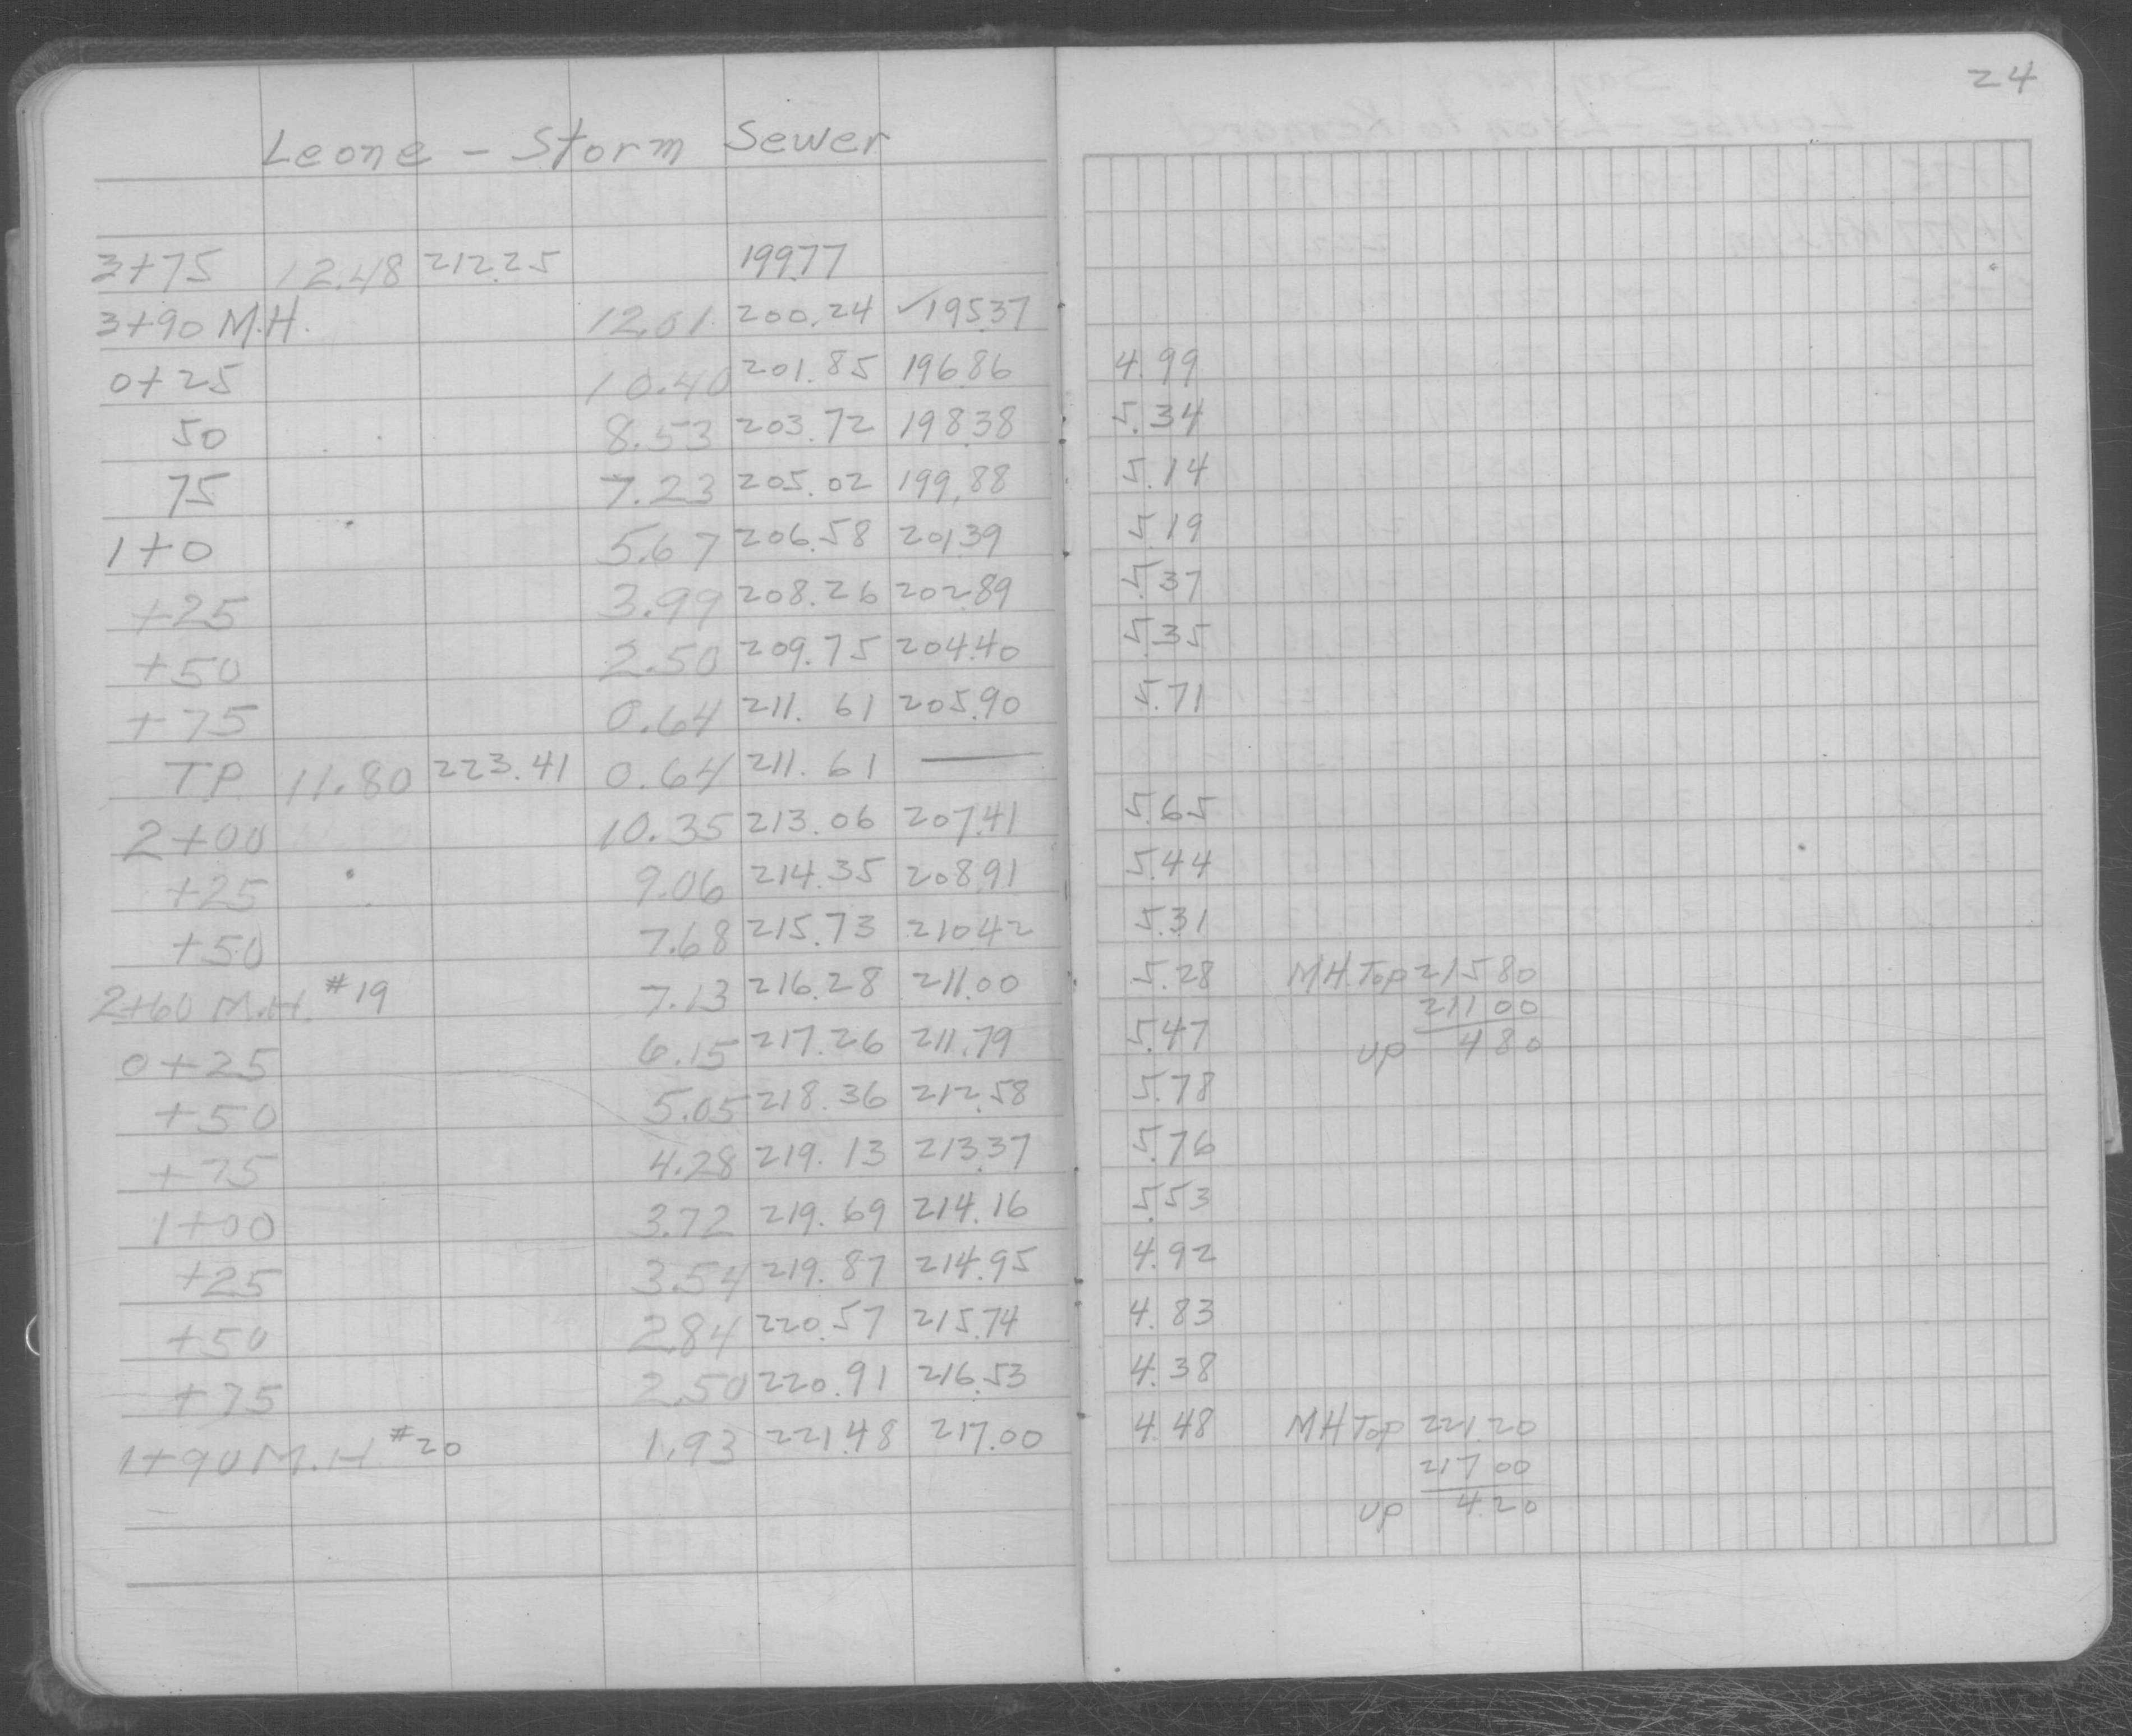 24
Leone - Storm Sewer
3+75 12.48 212.25 199.77
3+90 M.H. 12.01 200.24 ✓195.37
0+25 10.40 201.85 196.86 4.99
50 8.53 203.72 198.38 5.34
75 7.23 205.02 199.88 5.14
1+0 5.67 206.58 201.39 5.19
+25 3.99 208.26 202.89 5.37
+50 2.50 209.75 204.40 5.35
+75 0.64 211.61 205.90 5.71
T.P. 11.80 223.41 0.64 211.61 —
2+00 10.35 213.06 207.41 5.65
+25 9.06 214.35 208.91 5.44
+50 7.68 215.73 210.42 5.31
2+60 M.H. #19 7.13 216.28 211.00 5.28 MH.Top 215 80
211 00
0+25 6.15 217.26 211.79 5.47 up 4 80
+50 5.05 218.36 212.58 5.78
+75 4.28 219.13 213.37 5.76
1+00 3.72 219.69 214.16 5.53
+25 3.54 219.87 214.95 4.92
+50 2.84 220.57 215.74 4.83
+75 2.50 220.91 216.53 4.38
1+90 M.H #20 1.93 221.48 217.00 4.48 MH Top 221.20
217 00
up 4.20